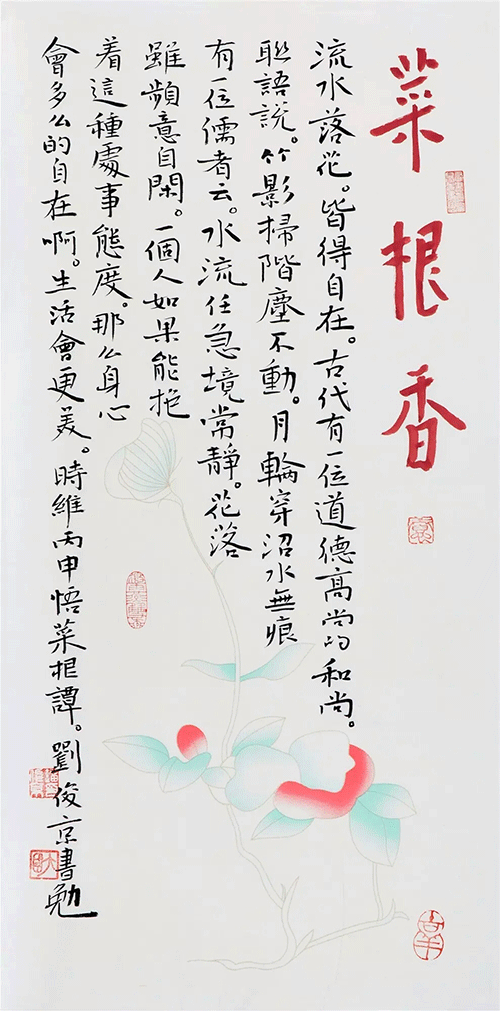 菜根香
流水落花。皆得自在。古代有一位道德高尚的和尚。
联語說。竹影掃階塵不動。月輪穿沼水無痕
有一位儒者云。水流任急境常靜。花落
雖頻意自閑。一個人如果能抱
着這種處事態度。那么身心
會多么的自在啊。生活會更美。時維丙申悟菜根譚。劉俊京書勉